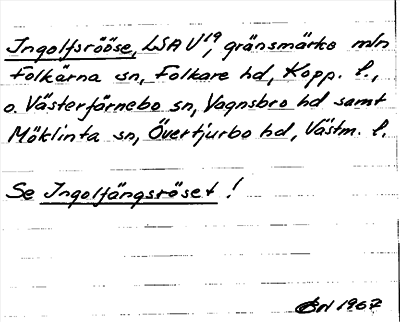 Ingolfsrööse, LSA U¹⁹, gränsmärke mln
Folkärna sn, Folkare hd, Kopp. l.,
o. Västerfärnebo sn, Vagnsbro hd samt
Möklinta sn, Övertjurbo hd, Västm. l.
Se Ingolfängsröset!
1967